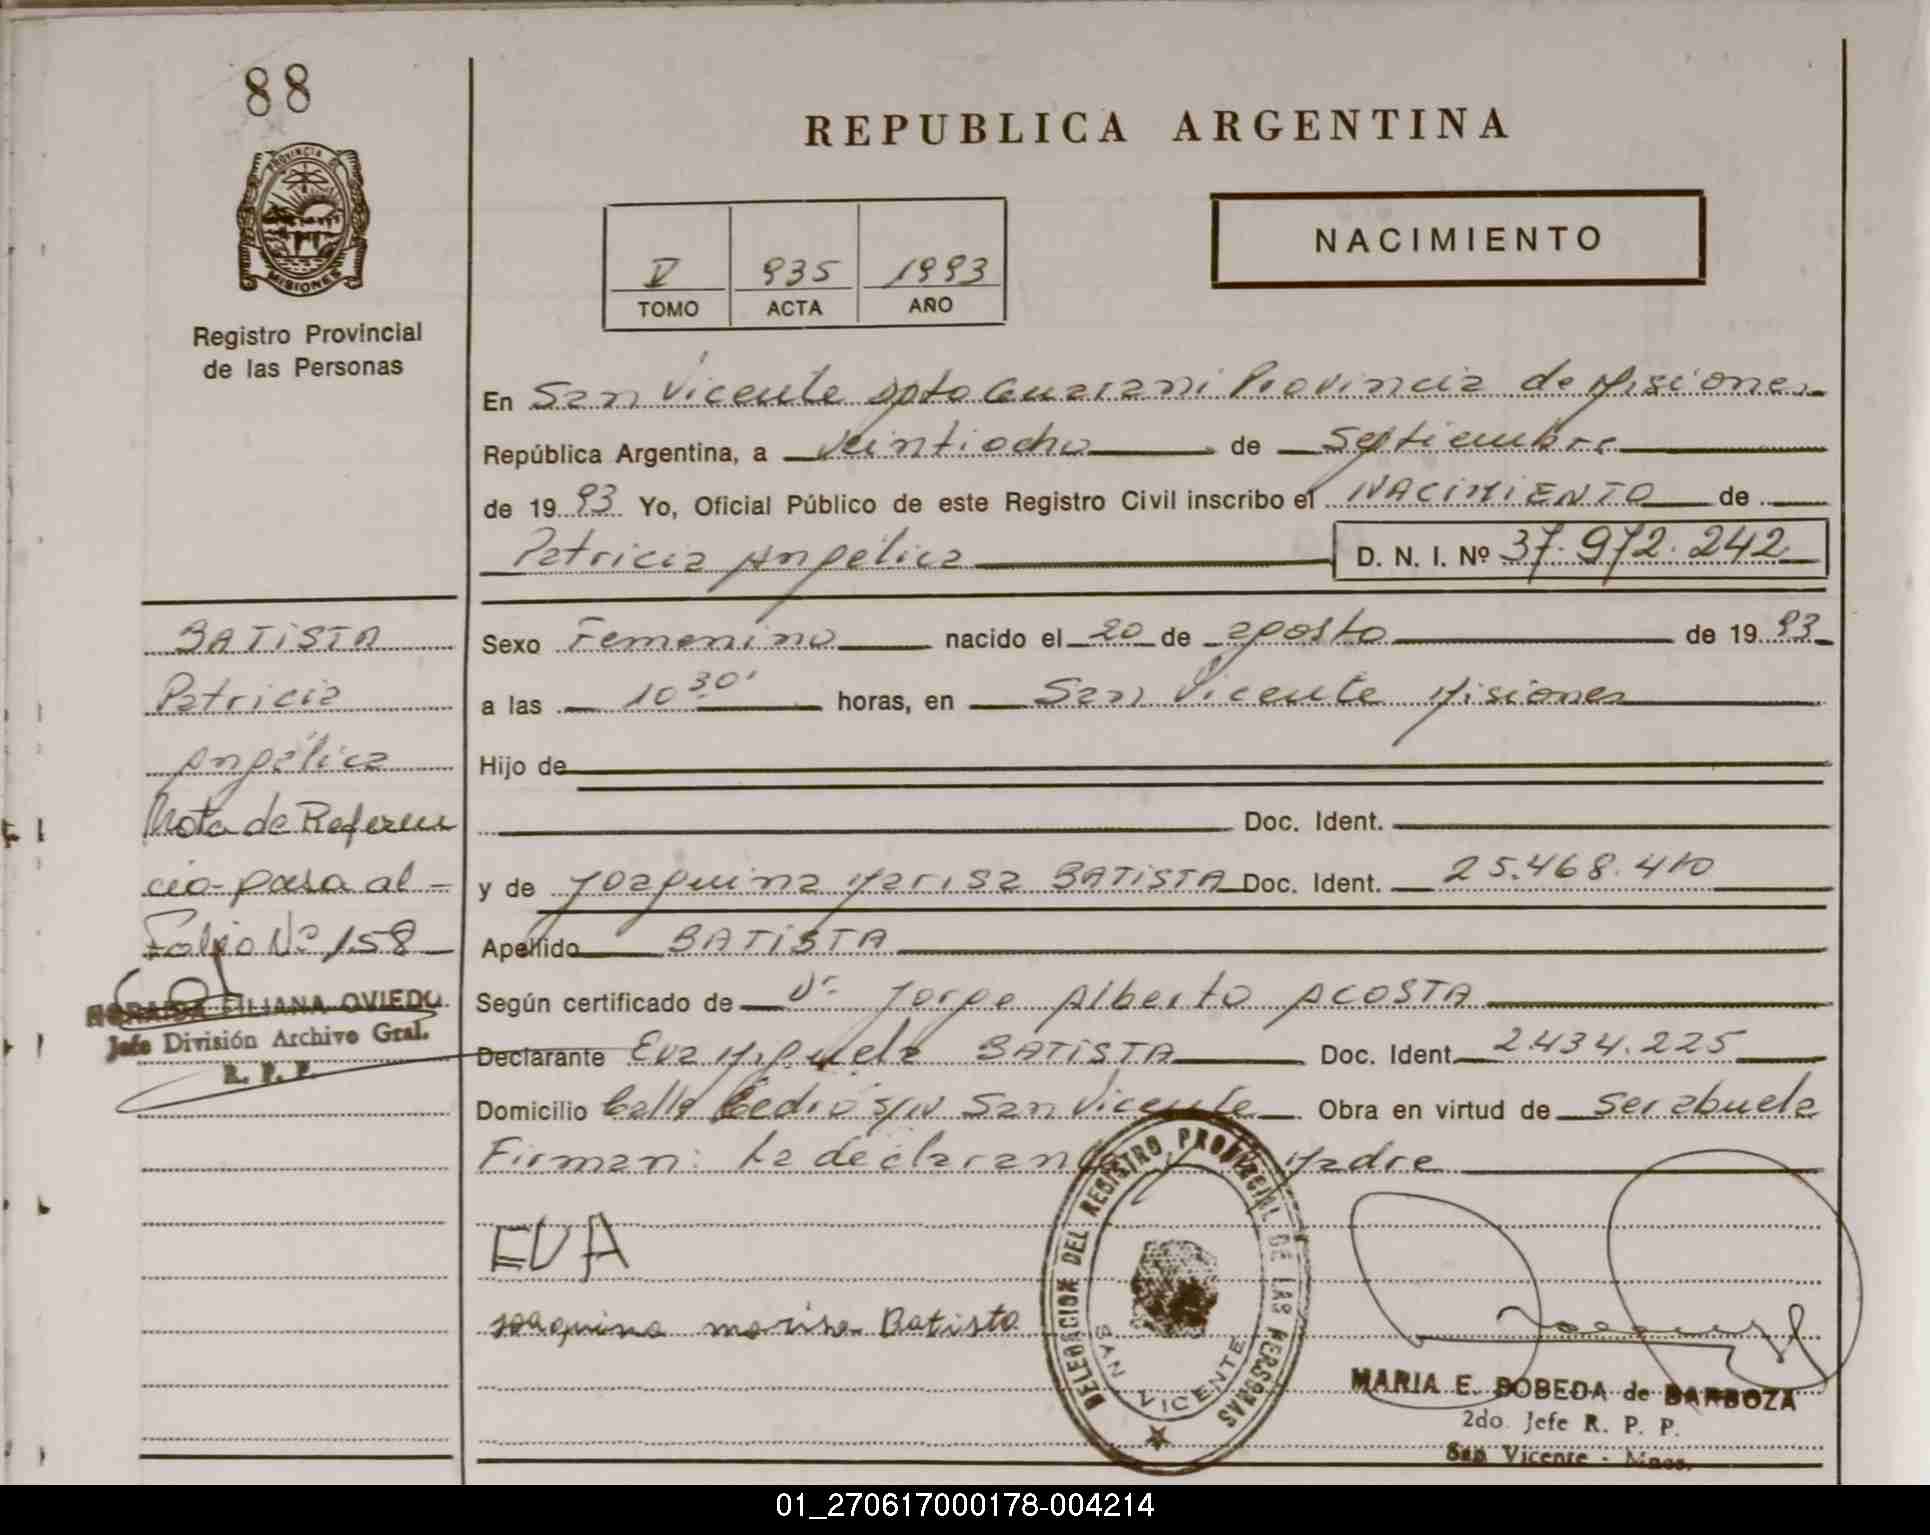 88
PROVINCIA DE
MISIONES
Registro Provincial
de las Personas
REPUBLICA ARGENTINA
V 935 1993
TOMO ACTA AÑO
NACIMIENTO
En San Vicente Dpto Guarani Provincia de Misiones
República Argentina, a veintiocho de Septiembre
de 1993 Yo, Oficial Público de este Registro Civil inscribo el NACIMIENTO de
Patricia Angélica D. N. I. Nº 37.972.242
BATISTA
Patricia
Angélica
Nota de Referen
cia pasa al -
Folio Nº 158
LILIANA OVIEDO
Jefe División Archivo Gral.
R. P. P.
Sexo Femenino nacido el 20 de agosto de 1993
a las 10 30' horas, en San Vicente Misiones
Hijo de
Doc. Ident.
y de Joaquina Marisa BATISTA Doc. Ident. 25.468.410
Apellido BATISTA
Según certificado de Dr Jorge Alberto ACOSTA
Declarante Eva Miguela BATISTA Doc. Ident. 2434.225
Domicilio Calle Cedro S/N San Vicente Obra en virtud de Ser abuela
Firman: La declarante Madre
EVA
Joaquina marisa Batista
DELEGACION DEL REGISTRO PROVINCIAL DE LAS PERSONAS
SAN VICENTE
MARIA E. BOBEDA de BARBOZA
2do. Jefe R. P. P.
San Vicente - Mnes.
01_270617000178-004214